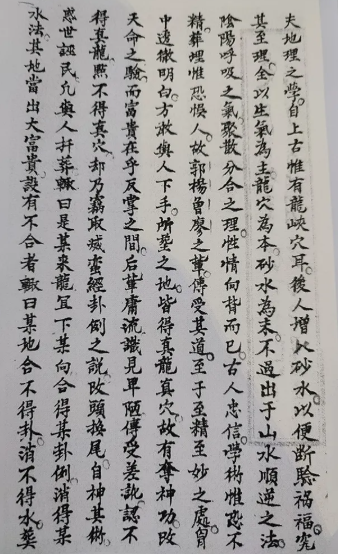 夫地理之學自上古惟有龍峽穴耳後人增以砂水以便断驗禍福究
其至理全以生氣為主龍穴為本砂水為末不過出于山水順逆之法
陰陽呼吸之氣聚散分合之理性情向背而已古人忠信學術惟恐不
精葬埋惟恐悞人故郭楊曾廖之軰傳受其道至于至精至妙之處胷
中透徹明白方敢與人下手所塋之地皆得真龍真穴故有奪神功改
天命之驗而富貴在乎反掌之間后軰庸流識見卑陋傳受差訛認不
得真龍㸃不得真穴却乃竊取滅蛮經卦例之說改頭換尾自神其術
惑世誣民凡與人扦葬輙曰是某來龍宜下某向合得某卦例消得某
水法其地當出大富貴設有不合者輙曰某地合不得卦消不得水葬